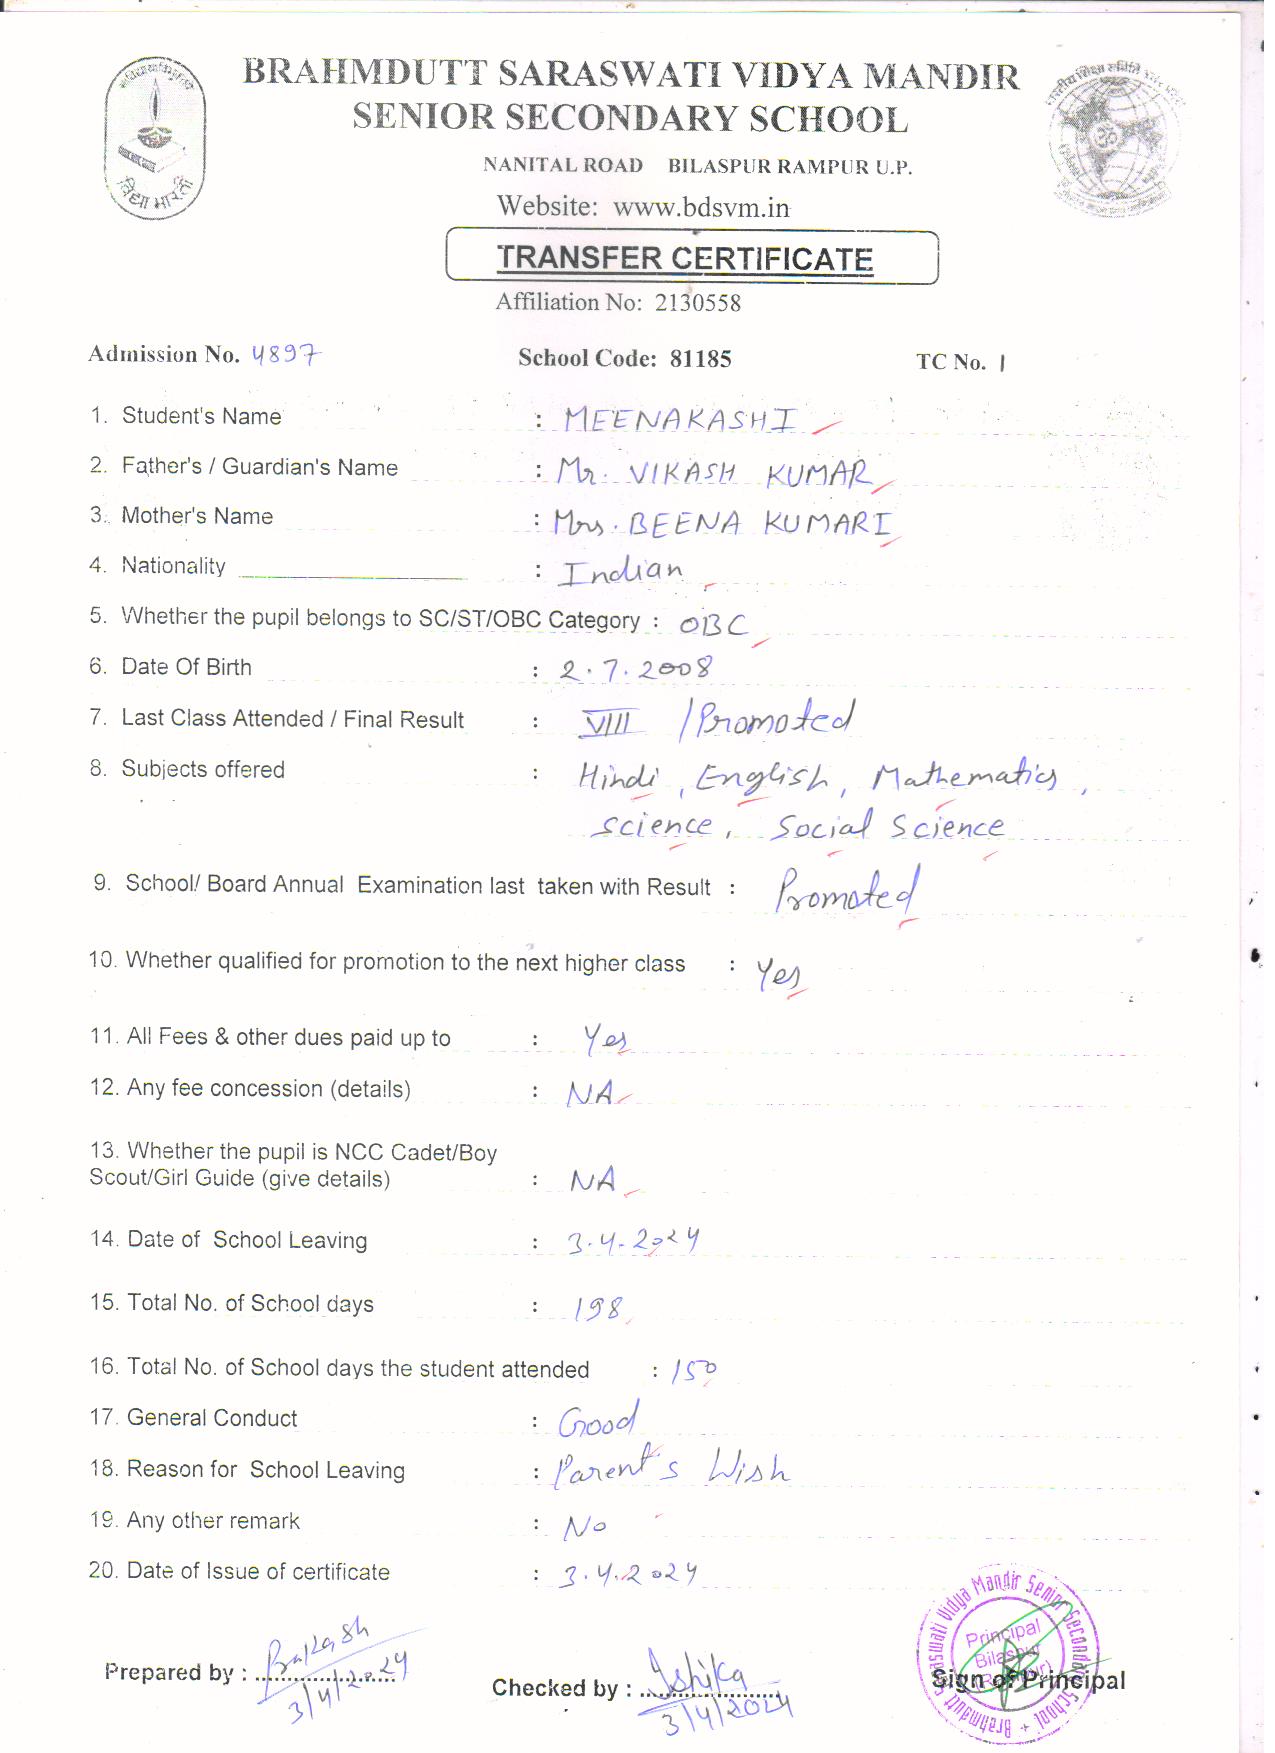 BRAHMDUTT SARASWATI VIDYA MANDIR
SENIOR SECONDARY SCHOOL
NANITAL ROAD BILASPUR RAMPUR U.P.
Website: www.bdsvm.in
विद्या भारती
TRANSFER CERTIFICATE
Affiliation No: 2130558
Admission No. 4897 School Code: 81185 TC No. 1
1. Student's Name : MEENAKASHI
2. Father's / Guardian's Name : Mr. VIKASH KUMAR
3. Mother's Name : Mrs. BEENA KUMARI
4. Nationality : Indian
5. Whether the pupil belongs to SC/ST/OBC Category : OBC
6. Date Of Birth : 2.7.2008
7. Last Class Attended / Final Result : VIII / Promoted
8. Subjects offered : Hindi, English, Mathematics,
Science, Social Science
9. School/ Board Annual Examination last taken with Result : Promoted
10. Whether qualified for promotion to the next higher class : Yes
11. All Fees & other dues paid up to : Yes
12. Any fee concession (details) : NA
13. Whether the pupil is NCC Cadet/Boy
Scout/Girl Guide (give details) : NA
14. Date of School Leaving : 3.4.2024
15. Total No. of School days : 198
16. Total No. of School days the student attended : 150
17. General Conduct : Good
18. Reason for School Leaving : Parent's Wish
19. Any other remark : No
20. Date of Issue of certificate : 3.4.2024
Prepared by : 3/4/2024
Checked by : Ishika 3/4/2024
Sign of Principal
Principal
Bilaspur